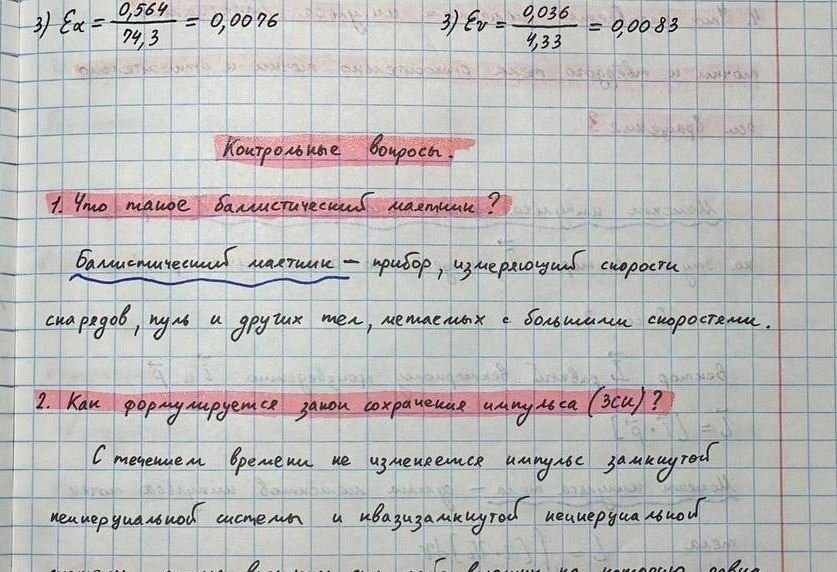 3) εα = 0,564 / 74,3 = 0,0076
3) εv = 0,036 / 4,33 = 0,0083
Контрольные вопросы.
1. Что такое баллистический маятник?
Баллистический маятник – прибор, измеряющий скорости
снарядов, пуль и других тел, метаемых с большими скоростями.
2. Как формулируется закон сохранения импульса (ЗСИ)?
С течением времени не изменяется импульс замкнутой
неинерциальной системы и квазизамкнутой неинерциальной